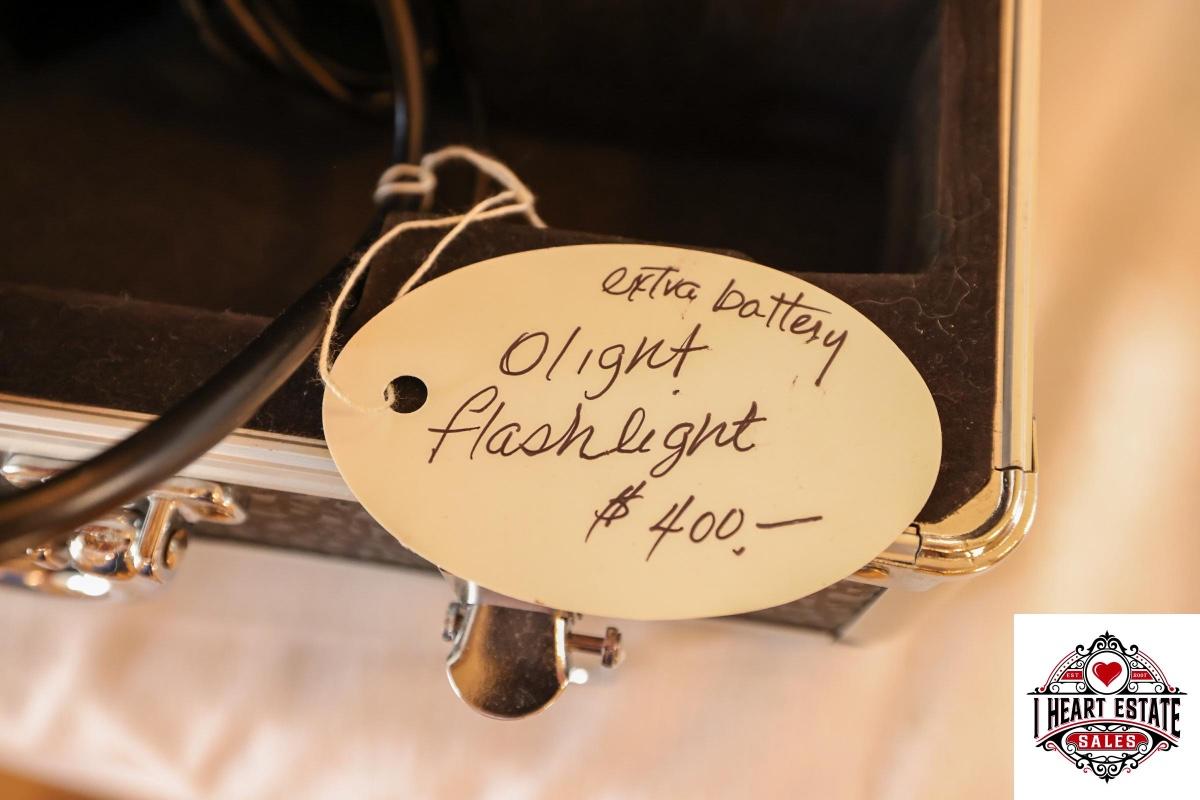 extra battery
Olight
flashlight
$400.—
EST 2007
I HEART ESTATE
SALES